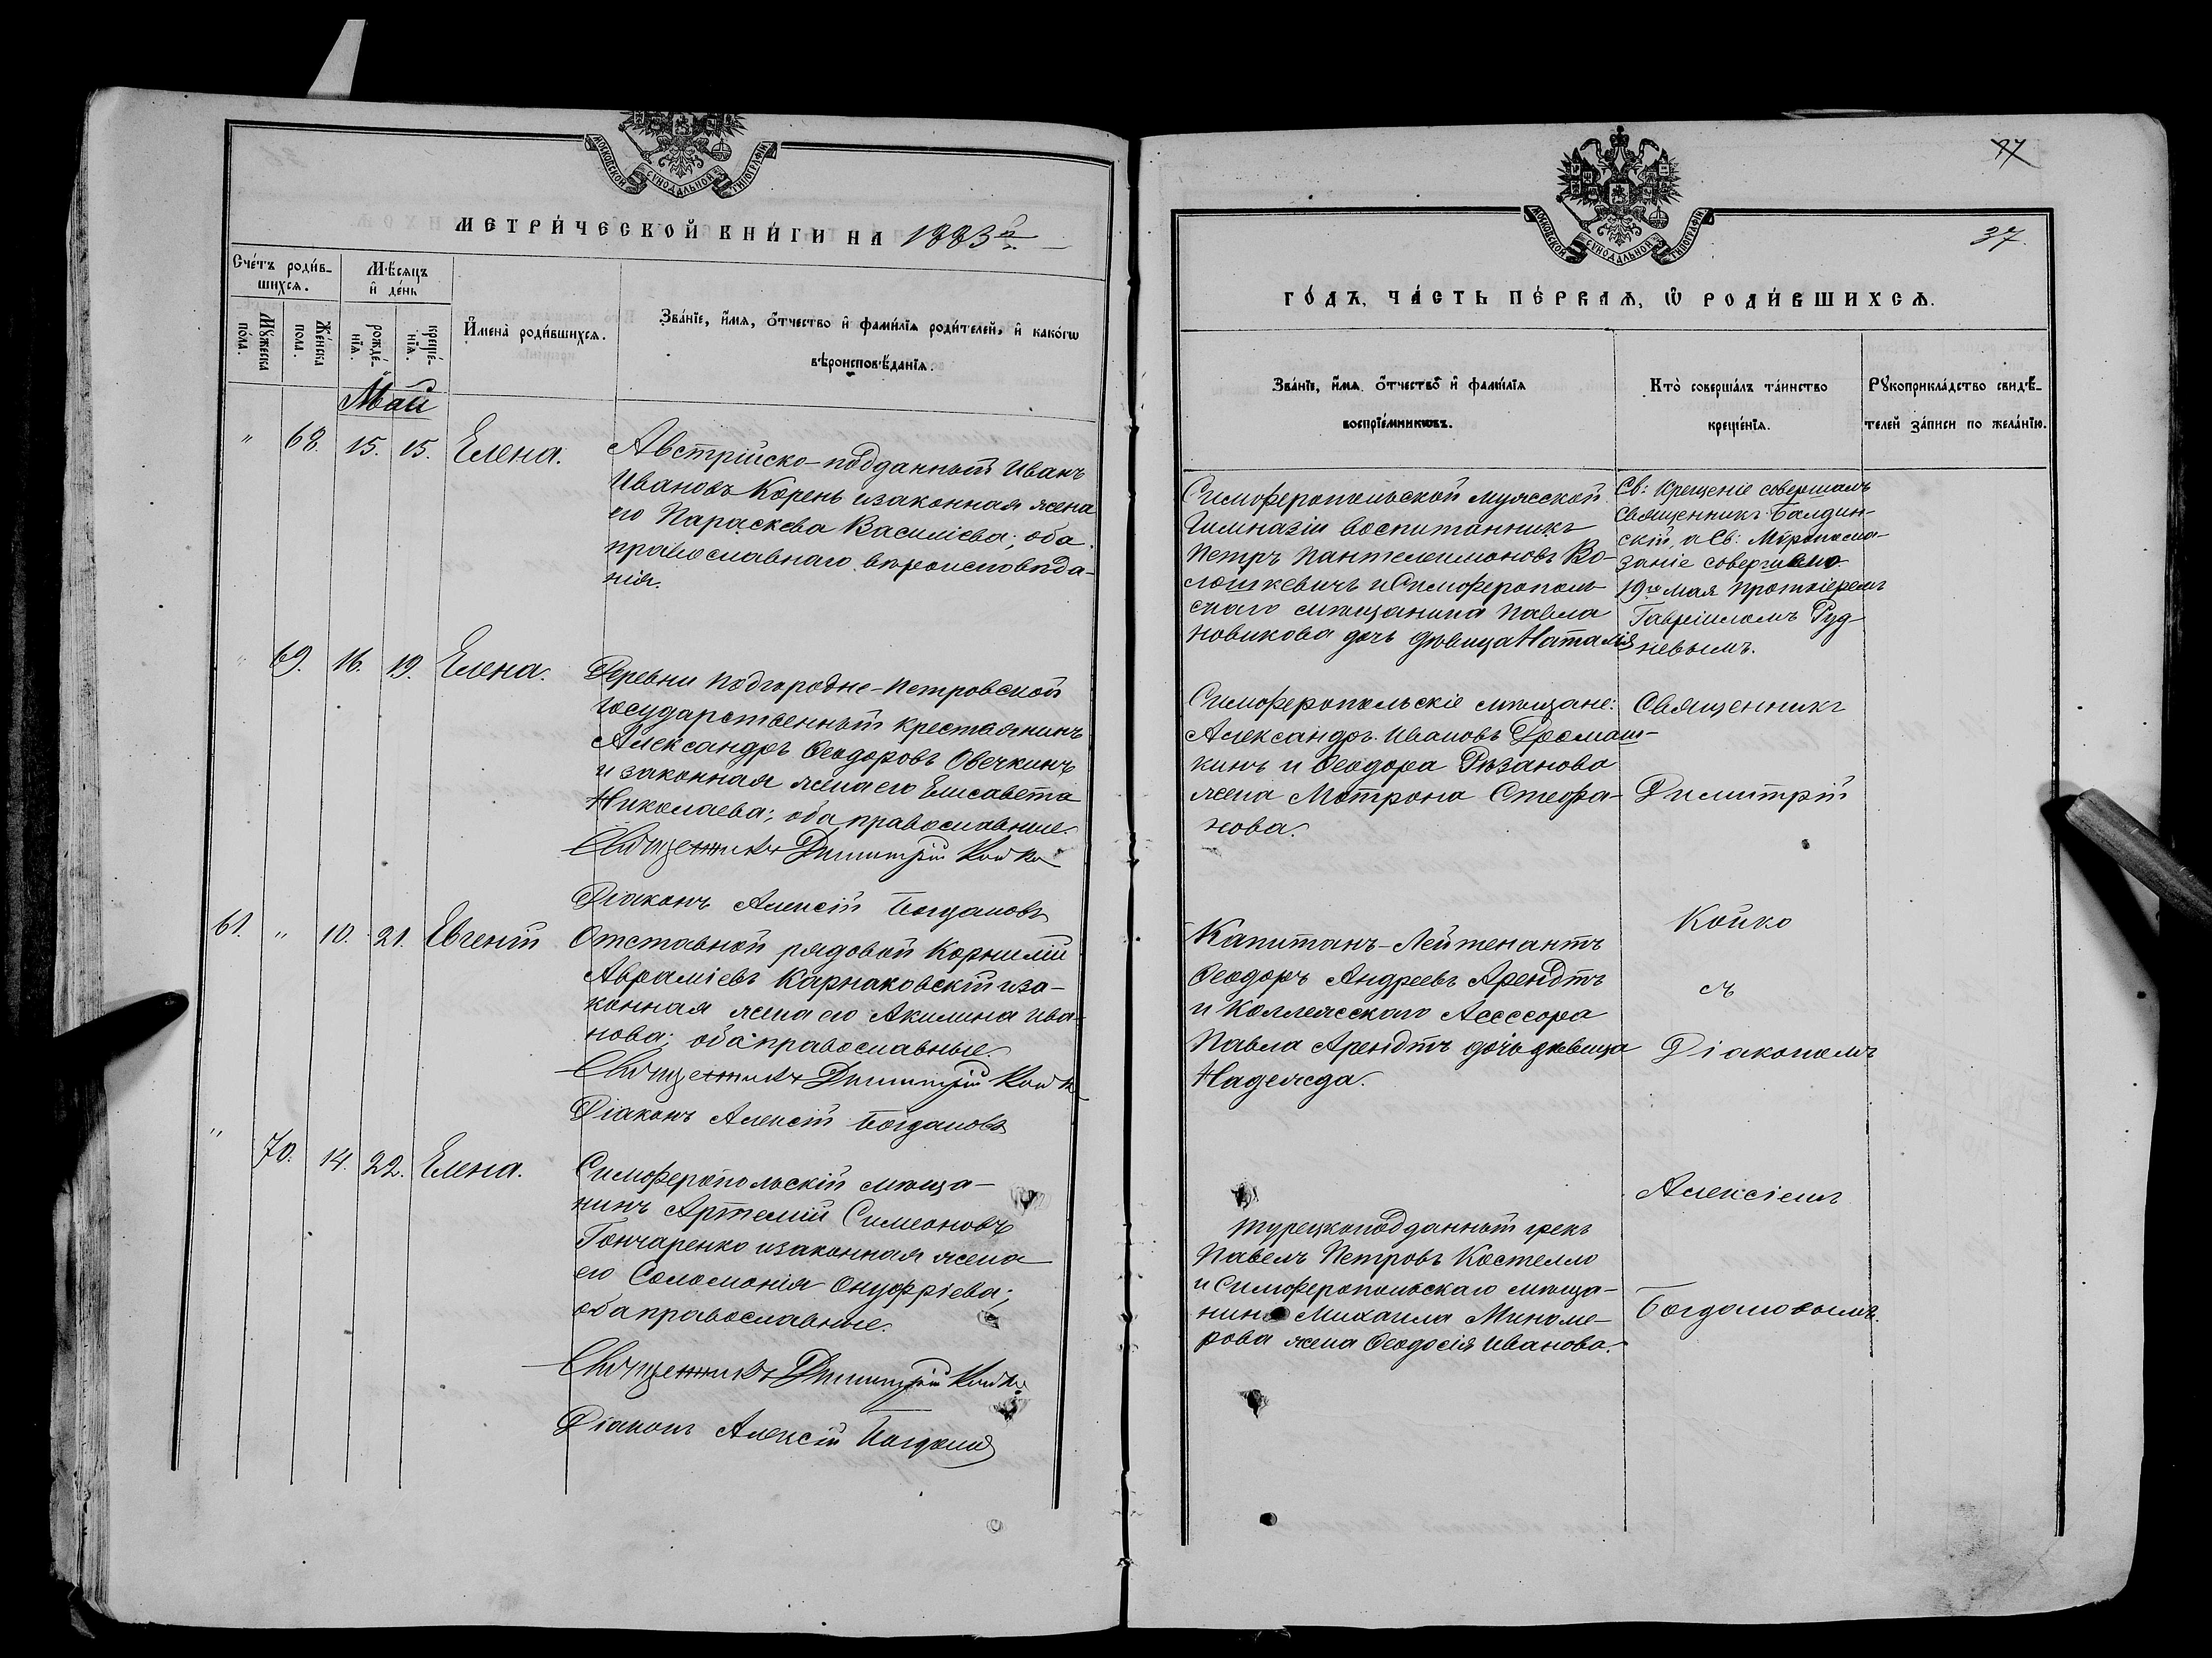 МОСКОВСКОЙ СѴНОДАЛЬНОЙ ТИПОГРАФІИ
МЕТРИ́ЧЕСКОЙ КНИ́ГИ НА 1883 й
Сче́тъ роди́в-
шихсѧ.
Мѣ́сѧцъ
и҆ де́нь
Мꙋ́жеска
по́ла.
Же́нска
по́ла.
рожде́-
нїѧ.
креще́-
нїѧ.
И҆мена̀ роди́вшихсѧ.
Зва́нїе, и҆́мѧ, ѻ҆́тчество и҆ фами́лїѧ роди́телей, и҆ како́гѡ
вѣроисповѣ́данїѧ.
Май
" 68. 15. 15. Елена.
Австрійско-подданный Иванъ
Ивановъ Корень и законная жена
его Параскева Василіева; оба
православнаго вѣроисповѣда-
нія.
" 69. 16. 19. Елена.
Деревни Подгородне-Петровской
государственный крестьянинъ
Александръ Ѳеодоровъ Овечкинъ
и законная жена его Елисавета
Николаева; оба православные.
Священникъ Димитрій Койко
Діаконъ Алексій Богдановъ
61. " 10. 21. Евгеній
Отставной рядовой Корнилій
Авраміевъ Карнаковскій и за-
конная жена его Акилина Ива-
нова; оба православные.
Священникъ Димитрій Койко
Діаконъ Алексій Богдановъ
" 70. 14. 22. Елена.
Симферопольскій мѣща-
нинъ Артемій Симеоновъ
Гончаренко и законная жена
его Соломонія Онуфріева;
оба православные.
Священникъ Димитрій Койко
Діаконъ Алексій Богдановъ
37
МОСКОВСКОЙ СѴНОДАЛЬНОЙ ТИПОГРАФІИ
37.
ГО́ДЪ, ЧА́СТЬ ПЕ́РВАѦ, Ѡ҆ РОДИ́ВШИХСѦ.
Зва́нїе, и҆́мѧ, ѻ҆́тчество и҆ фами́лїѧ
воспрїе́мникѡвъ.
Кто̀ соверша́лъ та́инство
креще́нїѧ.
Рꙋкоприкла́дство свидѣ́-
телей за́писи по жела́нїю.
Симферопольской мужской
Гимназіи воспитанникъ
Петръ Пантелеимоновъ Во-
лошкевичъ и Симферополь-
скаго мѣщанина Павла
Новикова дочь дѣвица Наталія
Св: Крещеніе совершалъ
Священникъ Балдин-
скій, а Св: Мѵропома-
заніе совершено
19го мая Протоіереемъ
Гавріиломъ Руд
невымъ.
Симферопольскіе мѣщане:
Александръ Ивановъ Громаш-
кинъ и Ѳеодора Рѣзанова
жена Мотрона Стефа-
нова.
Священникъ
Димитрій
Капитанъ-Лейтенантъ
Ѳеодоръ Андреевъ Арендтъ
и Коллежскаго Ассесора
Павла Арендтъ дочь дѣвица
Надежда.
Койко
съ
Діакономъ
Турецкоподданный грекъ
Павелъ Петровъ Костелло
и Симферопольскаго мѣща-
нина Михаила Миноме-
рова жена Ѳеодосія Иванова.
Алексіемъ
Богдановымъ.